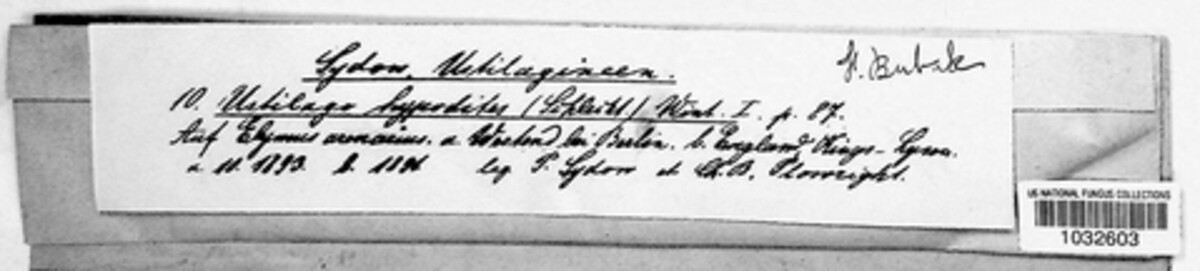 Sydow, Ustilagineen.
H. Bubak
10. Ustilago hypodites (Schlecht.) Wint. I. p. 87.
Auf Elymus arenarius. a. Westend bei Berlin. b. England, Kings-Lynn.
a 10. 1893. b. 1891 leg. P. Sydow et Ch. B. Plowright.
US NATIONAL FUNGUS COLLECTIONS
1032603